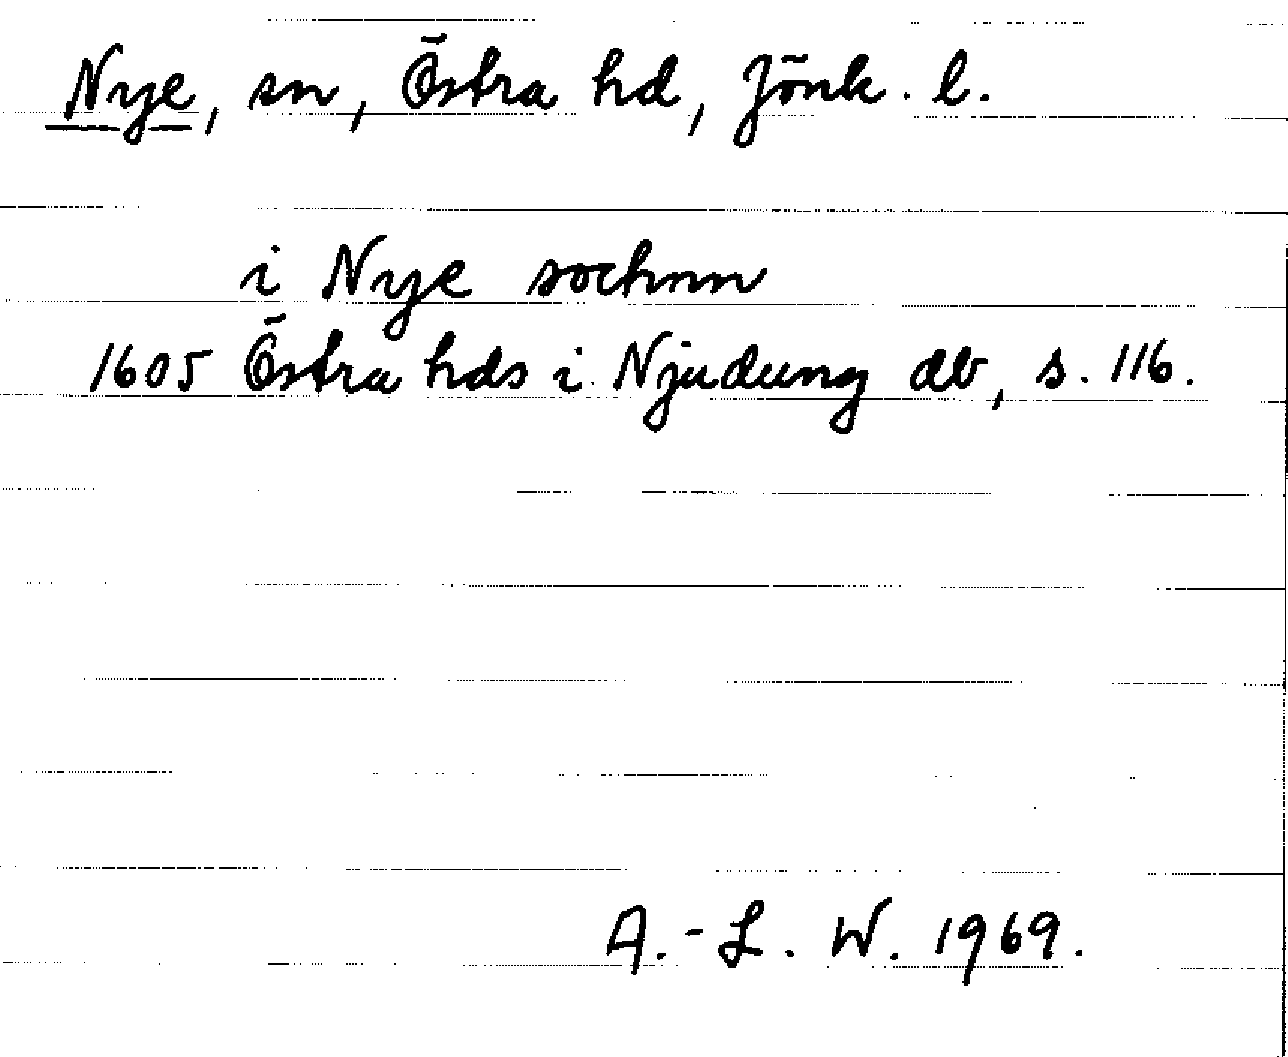 Nye, sn, Östra hd, Jönk. l.
i Nye sochnn
1605 Östra hds i Njudung db, s. 116.
A.-L. W. 1969.